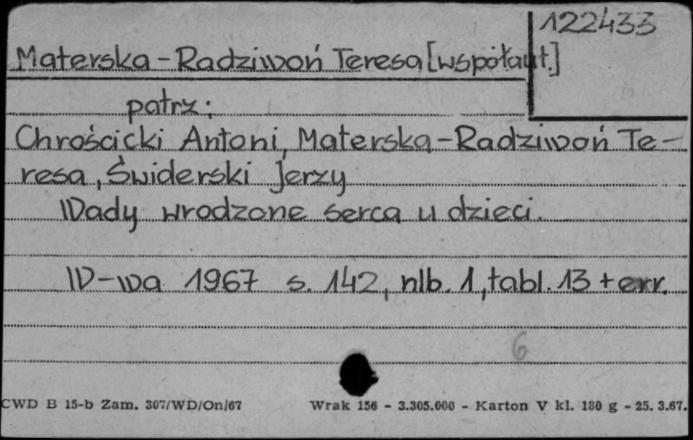 122433
Materska-Radziwoń Teresa [współaut.]
patrz:
Chrościcki Antoni, Materska-Radziwoń Te-
resa, Świderski Jerzy
Wady wrodzone serca u dzieci.
W-wa 1967 s. 142, nlb. 1, tabl. 13 + err.
6
CWD B 15-b Zam. 307/WD/On/67 Wrak 156 - 3.305.000 - Karton V kl. 180 g - 25. 3.67.